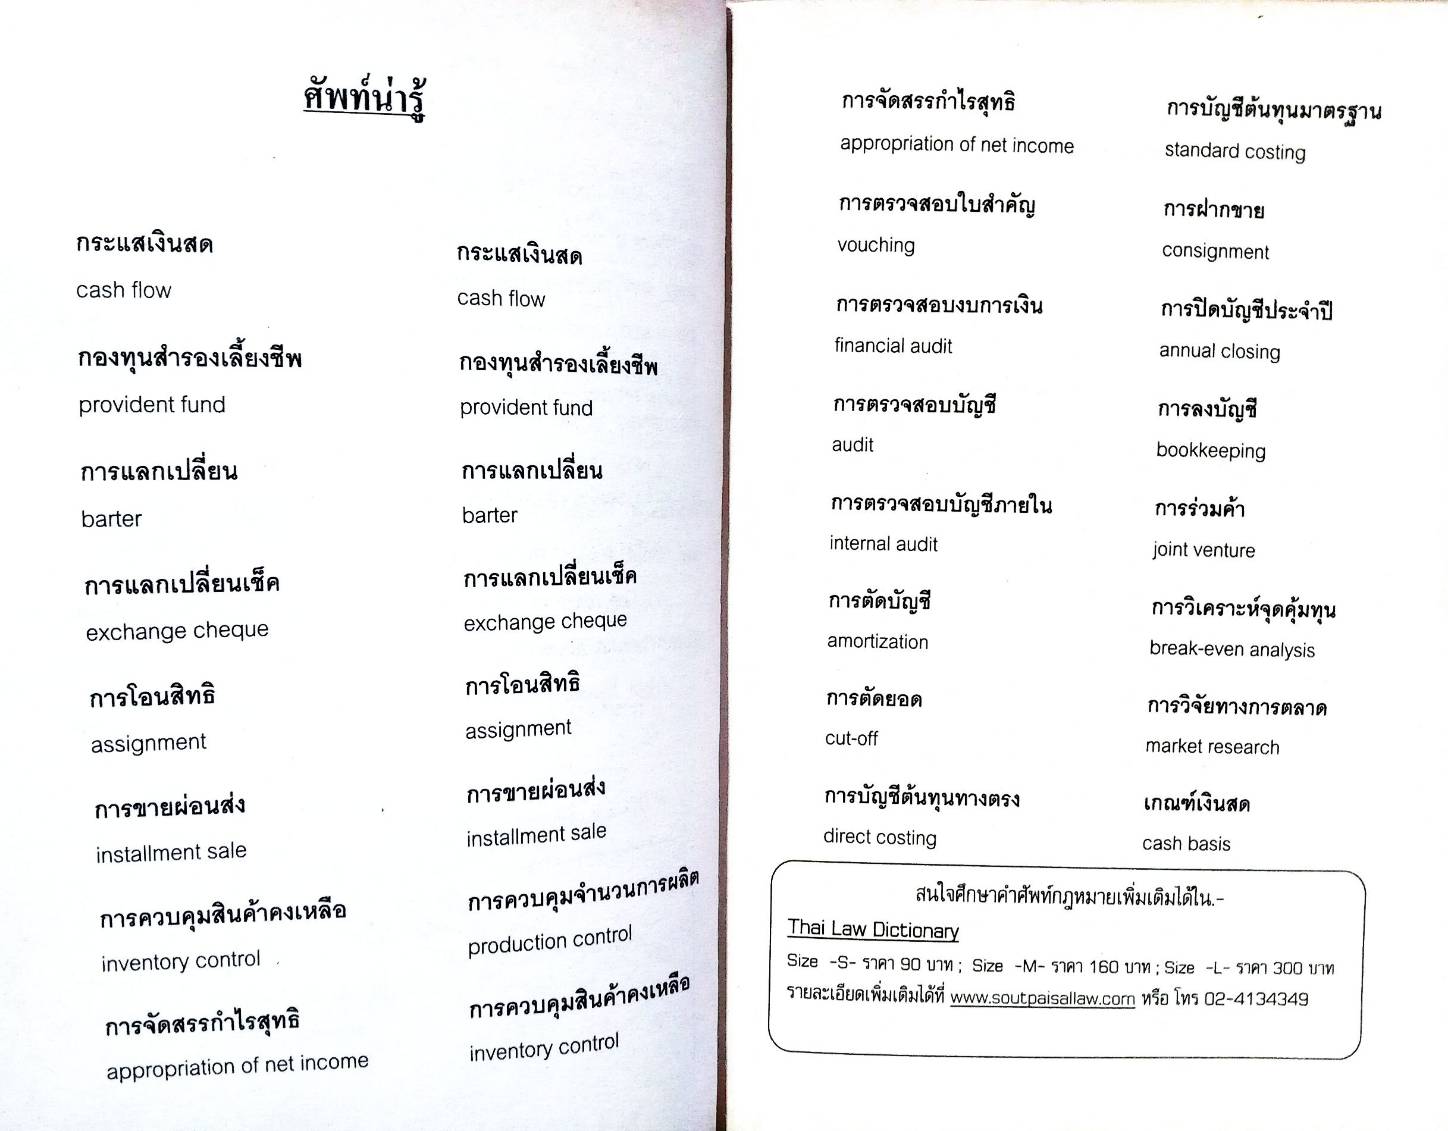 ศัพท์น่ารู้
กระแสเงินสด
cash flow
กองทุนสำรองเลี้ยงชีพ
provident fund
การแลกเปลี่ยน
barter
การแลกเปลี่ยนเช็ค
exchange cheque
การโอนสิทธิ
assignment
การขายผ่อนส่ง
installment sale
การควบคุมสินค้าคงเหลือ
inventory control
การจัดสรรกำไรสุทธิ
appropriation of net income
กระแสเงินสด
cash flow
กองทุนสำรองเลี้ยงชีพ
provident fund
การแลกเปลี่ยน
barter
การแลกเปลี่ยนเช็ค
exchange cheque
การโอนสิทธิ
assignment
การขายผ่อนส่ง
installment sale
การควบคุมจำนวนการผลิต
production control
การควบคุมสินค้าคงเหลือ
inventory control
การจัดสรรกำไรสุทธิ
appropriation of net income
การตรวจสอบใบสำคัญ
vouching
การตรวจสอบงบการเงิน
financial audit
การตรวจสอบบัญชี
audit
การตรวจสอบบัญชีภายใน
internal audit
การตัดบัญชี
amortization
การตัดยอด
cut-off
การบัญชีต้นทุนทางตรง
direct costing
การบัญชีต้นทุนมาตรฐาน
standard costing
การฝากขาย
consignment
การปิดบัญชีประจำปี
annual closing
การลงบัญชี
bookkeeping
การร่วมค้า
joint venture
การวิเคราะห์จุดคุ้มทุน
break-even analysis
การวิจัยทางการตลาด
market research
เกณฑ์เงินสด
cash basis
สนใจศึกษาคำศัพท์กฎหมายเพิ่มเติมได้ใน.-
Thai Law Dictionary
Size -S- ราคา 90 บาท ; Size -M- ราคา 160 บาท ; Size -L- ราคา 300 บาท
รายละเอียดเพิ่มเติมได้ที่ www.soutpaisallaw.com หรือ โทร 02-4134349